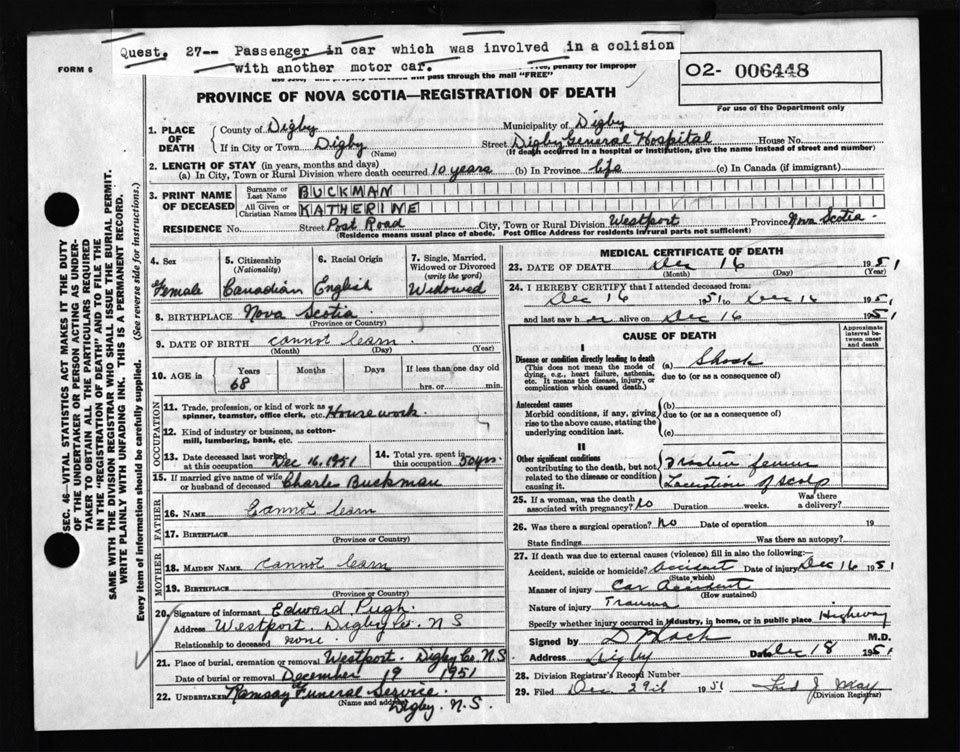 Quest. 27-- Passenger in car which was involved in a colision
with another motor car.
FORM 6
penalty for improper
pass through the mail "FREE"
02- 006448
For use of the Department only
PROVINCE OF NOVA SCOTIA—REGISTRATION OF DEATH
SEC. 46—VITAL STATISTICS ACT MAKES IT THE DUTY
OF THE UNDERTAKER OR PERSON ACTING AS UNDER-
TAKER TO OBTAIN ALL THE PARTICULARS REQUIRED
IN THE "REGISTRATION OF DEATH" AND TO FILE THE
SAME WITH THE DIVISION REGISTRAR WHO SHALL ISSUE THE BURIAL PERMIT.
WRITE PLAINLY WITH UNFADING INK. THIS IS A PERMANENT RECORD.
Every item of information should be carefully supplied. (See reverse side for instructions.)
1. PLACE OF DEATH
County of Digby Municipality of Digby
If in City or Town Digby (Name) Street Digby General Hospital House No.
(If death occurred in a hospital or institution, give the name instead of street and number)
2. LENGTH OF STAY (in years, months and days)
(a) In City, Town or Rural Division where death occurred 10 years (b) In Province life (c) In Canada (if immigrant)
3. PRINT NAME OF DECEASED
Surname or Last Name BUCKMAN
All Given or Christian Names KATHERINE
RESIDENCE No. Street Post Road City, Town or Rural Division Westport Province Nova Scotia
(Residence means usual place of abode. Post Office Address for residents in rural parts not sufficient)
4. Sex
Female
5. Citizenship (Nationality)
Canadian
6. Racial Origin
English
7. Single, Married, Widowed or Divorced (write the word)
Widowed
8. BIRTHPLACE Nova Scotia
(Province or Country)
9. DATE OF BIRTH cannot learn
(Month) (Day) (Year)
10. AGE in Years Months Days If less than one day old
68 hrs. or min.
OCCUPATION
11. Trade, profession, or kind of work as
spinner, teamster, office clerk, etc. Housework.
12. Kind of industry or business, as cotton-
mill, lumbering, bank, etc.
13. Date deceased last worked
at this occupation Dec 16, 1951
14. Total yrs. spent in
this occupation 50 yrs.
15. If married give name of wife
or husband of deceased Charles Buckman
FATHER
16. NAME Cannot learn
17. BIRTHPLACE
(Province or Country)
MOTHER
18. MAIDEN NAME cannot learn
19. BIRTHPLACE
(Province or Country)
20. Signature of informant Edward Pugh.
Address Westport, Digby Co. N S
Relationship to deceased none.
21. Place of burial, cremation or removal Westport. Digby Co. N.S
Date of burial or removal December 19 1951
22. UNDERTAKER Ramsay Funeral Service.
(Name and address) Digby. N.S.
MEDICAL CERTIFICATE OF DEATH
23. DATE OF DEATH Dec 16 1951
(Month) (Day) (Year)
24. I HEREBY CERTIFY that I attended deceased from:
Dec 16 1951 to Dec 16 1951
and last saw her alive on Dec 16 1951
CAUSE OF DEATH
Approximate interval between onset and death
I
Disease or condition directly leading to death
(This does not mean the mode of
dying, e.g., heart failure, asthenia,
etc. It means the disease, injury, or
complication which caused death.)
(a) Shock
due to (or as a consequence of)
Antecedent causes
Morbid conditions, if any, giving
rise to the above cause, stating the
underlying condition last.
(b)
due to (or as a consequence of)
(c)
II
Other significant conditions
contributing to the death, but not
related to the disease or condition
causing it.
Fracture femur
Laceration of scalp
25. If a woman, was the death
associated with pregnancy? No Duration weeks. Was there a delivery?
26. Was there a surgical operation? No Date of operation 19
State findings Was there an autopsy?
27. If death was due to external causes (violence) fill in also the following:—
Accident, suicide or homicide? Accident Date of injury Dec 16 1951
(State which)
Manner of injury Car Accident
(How sustained)
Nature of injury Trauma
Specify whether injury occurred in industry, in home, or in public place Highway
Signed by M.D.
Address Digby Date Dec 18 1951
28. Division Registrar's Record Number
29. Filed Dec 29th 1951
(Division Registrar)